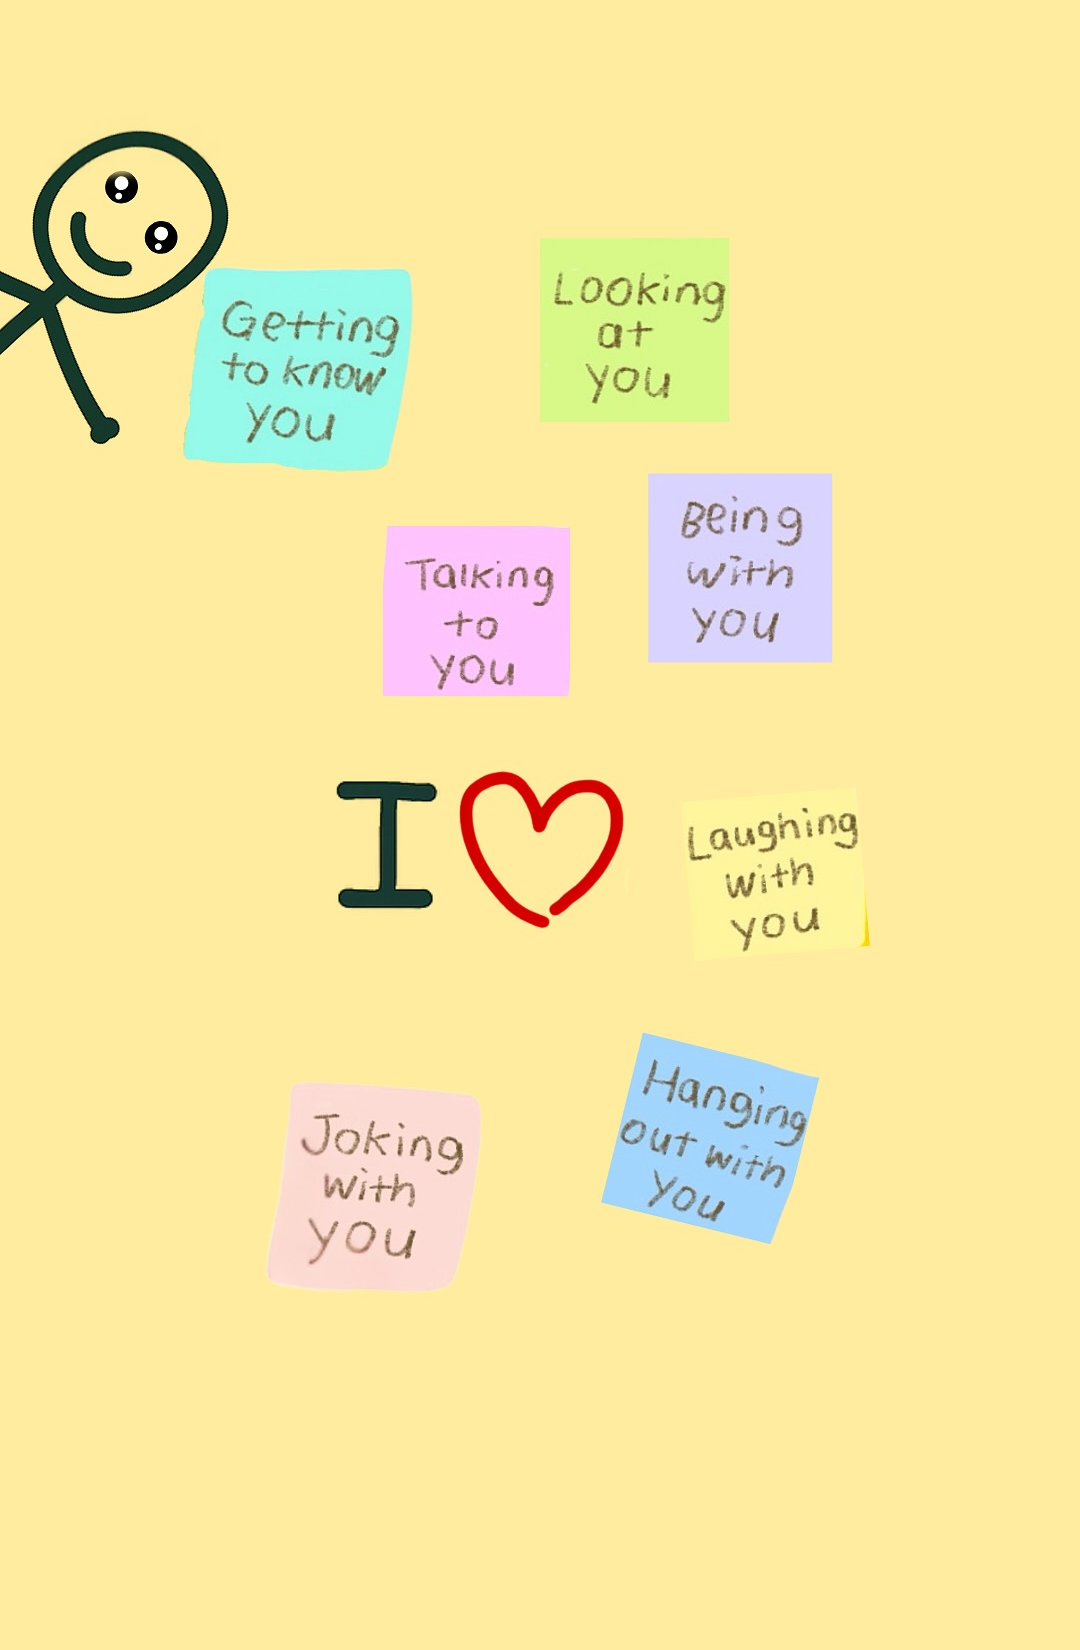 Getting
to know
you
Looking
at
you
Talking
to
you
Being
with
you
I
Laughing
with
you
Joking
with
you
Hanging
out with
you